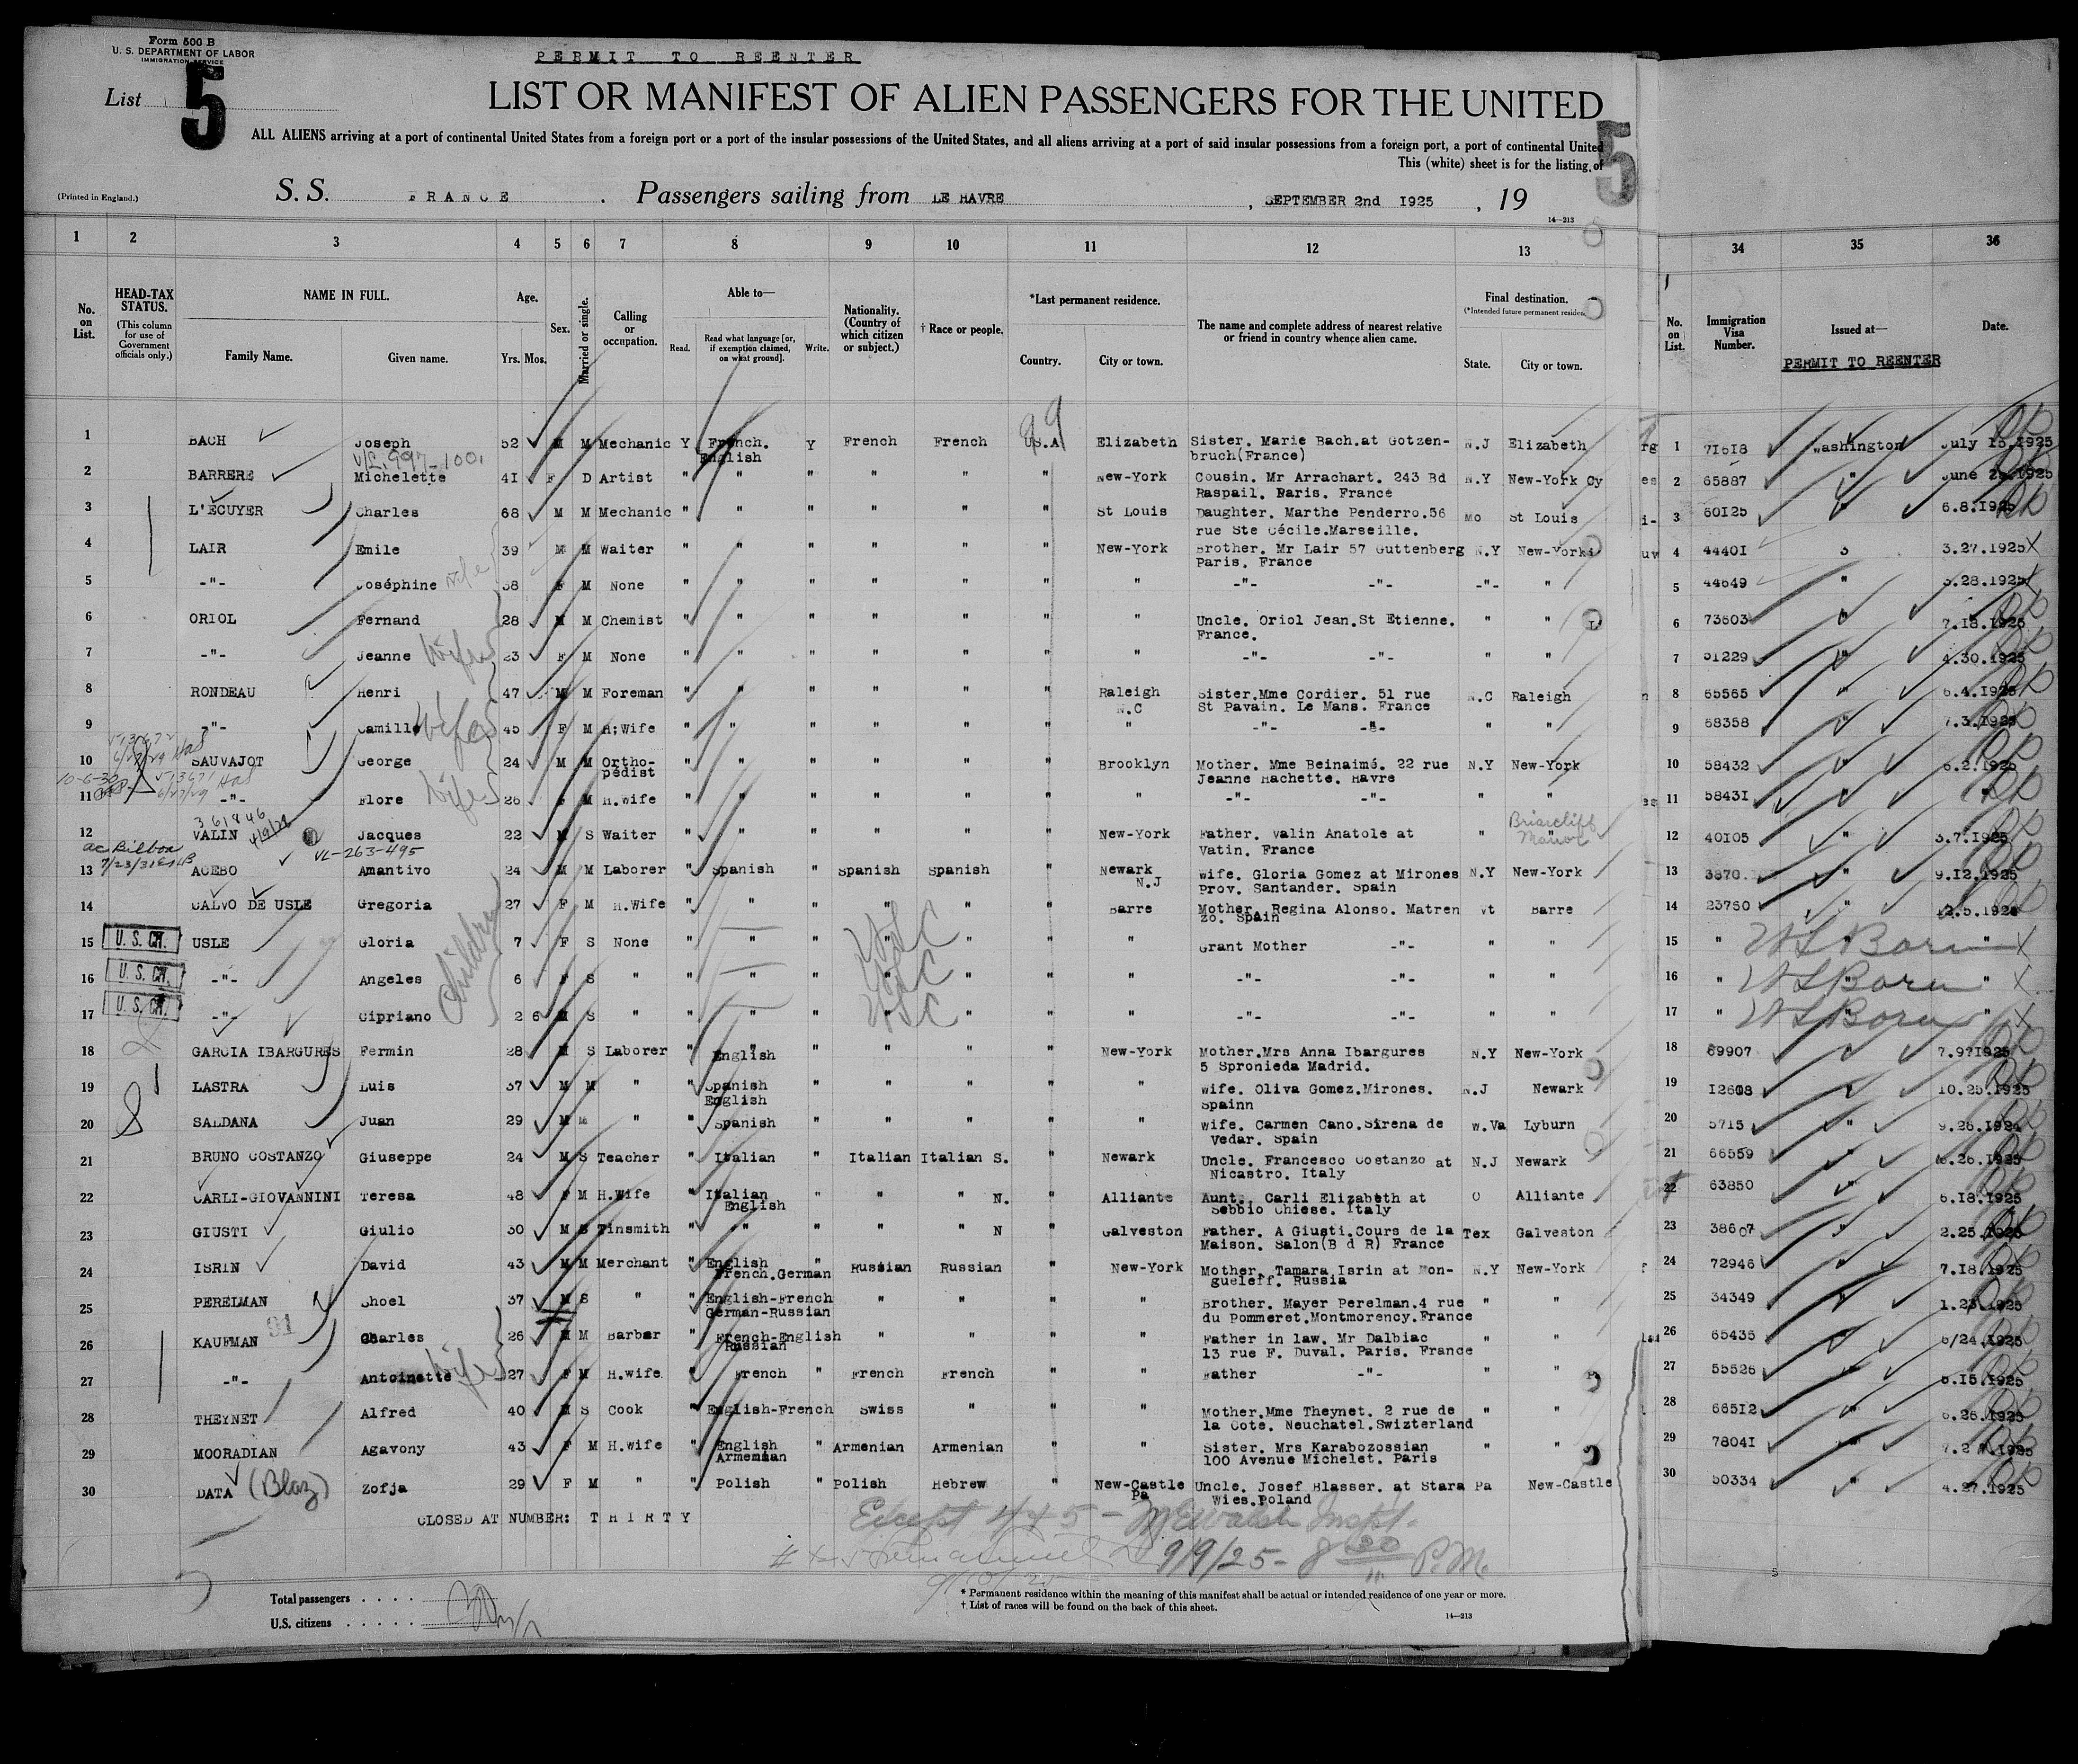 Form 500 B
U. S. DEPARTMENT OF LABOR
IMMIGRATION SERVICE
PERMIT TO REENTER
List 5
LIST OR MANIFEST OF ALIEN PASSENGERS FOR THE UNITED
5
ALL ALIENS arriving at a port of continental United States from a foreign port or a port of the insular possessions of the United States, and all aliens arriving at a port of said insular possessions from a foreign port, a port of continental United
This (white) sheet is for the listing of
(Printed in England.) S. S. FRANCE . Passengers sailing from LE HAVRE , SEPTEMBER 2nd 1925 , 19
14—213
1 2 3 4 5 6 7 8 9 10 11 12 13 34 35 36
No. on List.
HEAD-TAX STATUS. (This column for use of Government officials only.)
NAME IN FULL. Family Name. Given name.
Age. Yrs. Mos.
Sex.
Married or single.
Calling or occupation.
Able to— Read. Read what language [or, if exemption claimed, on what ground]. Write.
Nationality. (Country of which citizen or subject.)
† Race or people.
*Last permanent residence. Country. City or town.
The name and complete address of nearest relative or friend in country whence alien came.
Final destination. (*Intended future permanent residen State. City or town.
No. on List.
Immigration Visa Number.
Issued at—
PERMIT TO REENTER
Date.
99
1 BACH Joseph 52 M M Mechanic Y French. English Y French French US.A Elizabeth Sister. Marie Bach.at Gotzen-bruch(France) N.J Elizabeth 1 71618 Washington July 15.1925
V/L.997-1001
2 BARRERE Michelette 41 F D Artist " " " " " " New-York Cousin. Mr Arrachart. 243 Bd Raspail. Paris. France N.Y New-York Cy 2 65887 " June 1925
3 L'ECUYER Charles 68 M M Mechanic " " " " " " St Louis Daughter. Marthe Penderro.56 rue Ste Cécile.Marseille. Mo St Louis 3 60125 " 6.8.1925
4 LAIR Emile 39 M M Waiter " " " " " " New-York Brother. Mr Lair 57 Guttenberg Paris. France N.Y New-York 4 44401 3.27.1925 X
5 -"- Joséphine wife 38 F M None " " " " " " " -"- -"- -"- " 5 44649 " 3.28.1925 X
6 ORIOL Fernand 28 M M Chemist " " " " " " " Uncle. Oriol Jean.St Etienne. France. " " 6 73603 " 7.18.1925
7 -"- Jeanne wife 23 F M None " " " " " " " -"- -"- " " 7 51229 " 4.30.1925
8 RONDEAU Henri 47 M M Foreman " " " " " " Raleigh N.C Sister.Mme Cordier. 51 rue St Pavain. Le Mans. France N.C Raleigh 8 65565 " 6.4.1925
9 -"- Camille wife 45 F M H;Wife " " " " " " " -"- -"- " " 9 68358 " 7.3.1925
10 SAUVAJOT George 24 M M Ortho-pédist " " " " " " Brooklyn Mother. Mme Beinaimé. 22 rue Jeanne Hachette. Havre N.Y New-York 10 58432 " 6.2.1925
11 -"- Flore wife 26 F M H.wife " " " " " " " -"- -"- " " 11 58431 " "
361846
12 VALIN Jacques 22 M S Waiter " " " " " " New-York Father. Valin Anatole at Vatin. France " Briarcliff Manor 12 40105 " 3.7.1925
VL-263-495
13 ACEBO Amantivo 24 M M Laborer " Spanish " Spanish Spanish " Newark N.J Wife. Gloria Gomez at Mirones Prov. Santander. Spain N.Y New-York 13 3870 " 9.12.1925
14 CALVO DE USLE Gregoria 27 F M H.Wife " " " " " " Barre Mother. Regina Alonso. Matren zo. Spain Vt Barre 14 23750 " 12.5.1924
15 U. S. CIT. USLE Gloria 7 F S None " " " " " " " Grant Mother -"- " " 15 " US Born " X
16 U. S. CIT. -"- Angeles 6 F S " " " " " " " " -"- -"- " " 16 " US Born " X
17 U. S. CIT. -"- Cipriano 2 6 M S " " " " " " " " -"- -"- " " 17 " US Born " X
Children
USC
USC
USC
18 GARCIA IBARGURES Fermin 28 M S Laborer " English " " " " New-York Mother.Mrs Anna Ibargures 5 Spronieda Madrid. N.Y New-York 18 69907 " 7.9?1925
19 LASTRA Luis 37 M M " " Spanish English " " " " " Wife. Oliva Gomez.Mirones. Spainn N.J Newark 19 12608 " 10.25.1925
20 SALDANA Juan 29 M M " " Spanish " " " " " Wife. Carmen Cano.Sirena de Vedar. Spain W.Va Lyburn 20 5715 " 9.26.1924
21 BRUNO COSTANZO Giuseppe 24 M S Teacher " Italian " Italian Italian S. " Newark Uncle. Francesco Costanzo at Nicastro. Italy N.J Newark 21 66559 " 6.26.1925
22 CARLI-GIOVANNINI Teresa 48 F M H.Wife " Italian English " " " N. " Alliante Aunt. Carli Elizabeth at Sebbio Chiese. Italy O Alliante 22 63850 " 6.18.1925
23 GIUSTI Giulio 30 M S Tinsmith " " " " " N " Galveston Father. A Giusti.Cours de la Maison. Salon(B d R) France Tex Galveston 23 38607 " 2.25.1925
24 ISRIN David 43 M M Merchant " English French.German " Russian Russian " New-York Mother. Tamara Isrin at Mon-gueleff. Russia N.Y New-York 24 72946 " 7.18.1925
25 PERELMAN Shoel 37 M S " " English-French German-Russian " " " " Brother. Mayer Perelman.4 rue du Pommeret.Montmorency.France " " 25 34349 " 1.23.1925
91
26 KAUFMAN Charles 26 M M Barber " French-English Russian " " " " Father in law. Mr Dalbiac 13 rue F. Duval. Paris. France " " 26 65435 " 6/24.1925
27 -"- Antoinette wife 27 F M H.wife " French " French French " " Father -"- " " 27 55526 " 5.15.1925
28 THEYNET Alfred 40 M S Cook " English-French Swiss " " " Mother.Mme Theynet. 2 rue de la Cote. Neuchatel.Swizterland " " 28 66512 " 6.26.1925
29 MOORADIAN Agavony 43 F M H.wife " English Armenian " Armenian Armenian " " Sister. Mrs Karabozossian 100 Avenue Michelet. Paris " " 29 78041 " 7.2 .1925
30 DATA (Blaz) Zofja 29 F M " " Polish " Polish Hebrew " New-Castle Pa Uncle. Josef Blasser. at Stara Wies.Poland Pa New-Castle 30 50334 " 4.27.1925
CLOSED AT NUMBER: THIRTY
Except 4+5 - Walsh Inspt.
9/9/25 - 8 30 P.M.
Total passengers . . . .
U.S. citizens . . . . .
* Permanent residence within the meaning of this manifest shall be actual or intended residence of one year or more.
† List of races will be found on the back of this sheet.
14—213